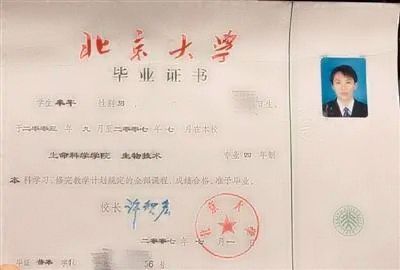 北京大学
毕业证书
学生 性别 生，
于二〇〇三年九月至二〇〇七年七月在本校
生命科学学院 生物技术 专业四年制
本科学习，修完教学计划规定的全部课程，成绩合格，准予毕业。
校长 许智宏
北京大学
二〇〇七年七月一日